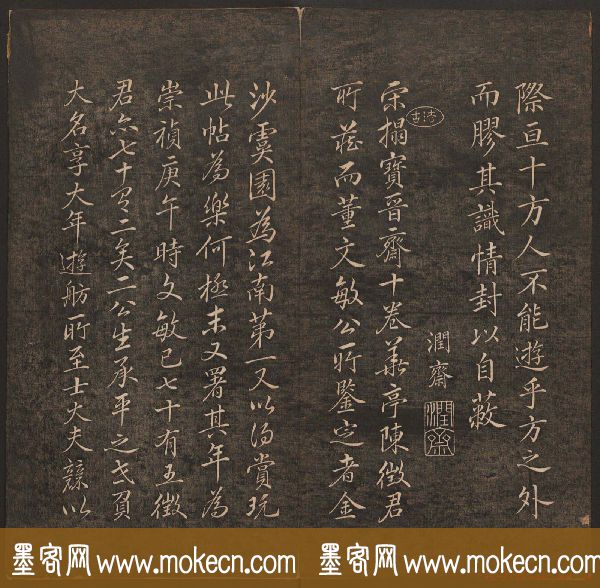 際亘十方人不能遊乎方之外
而膠其識情封以自蔽
潤齋
潤齋
宋搨寶晉齋十卷華亭陳徵君
所藏而董文敏公所鑒定者金
沙虞園為江南第一又以得賞玩
此帖為樂何極末又署其年為
崇禎庚午時文敏已七十有五徵
君亦七十有二矣二公生承平之世負
大名享大年遊舫所至士大夫競以
墨客网 www.mokecn.com
墨客网 www.mokecn.com